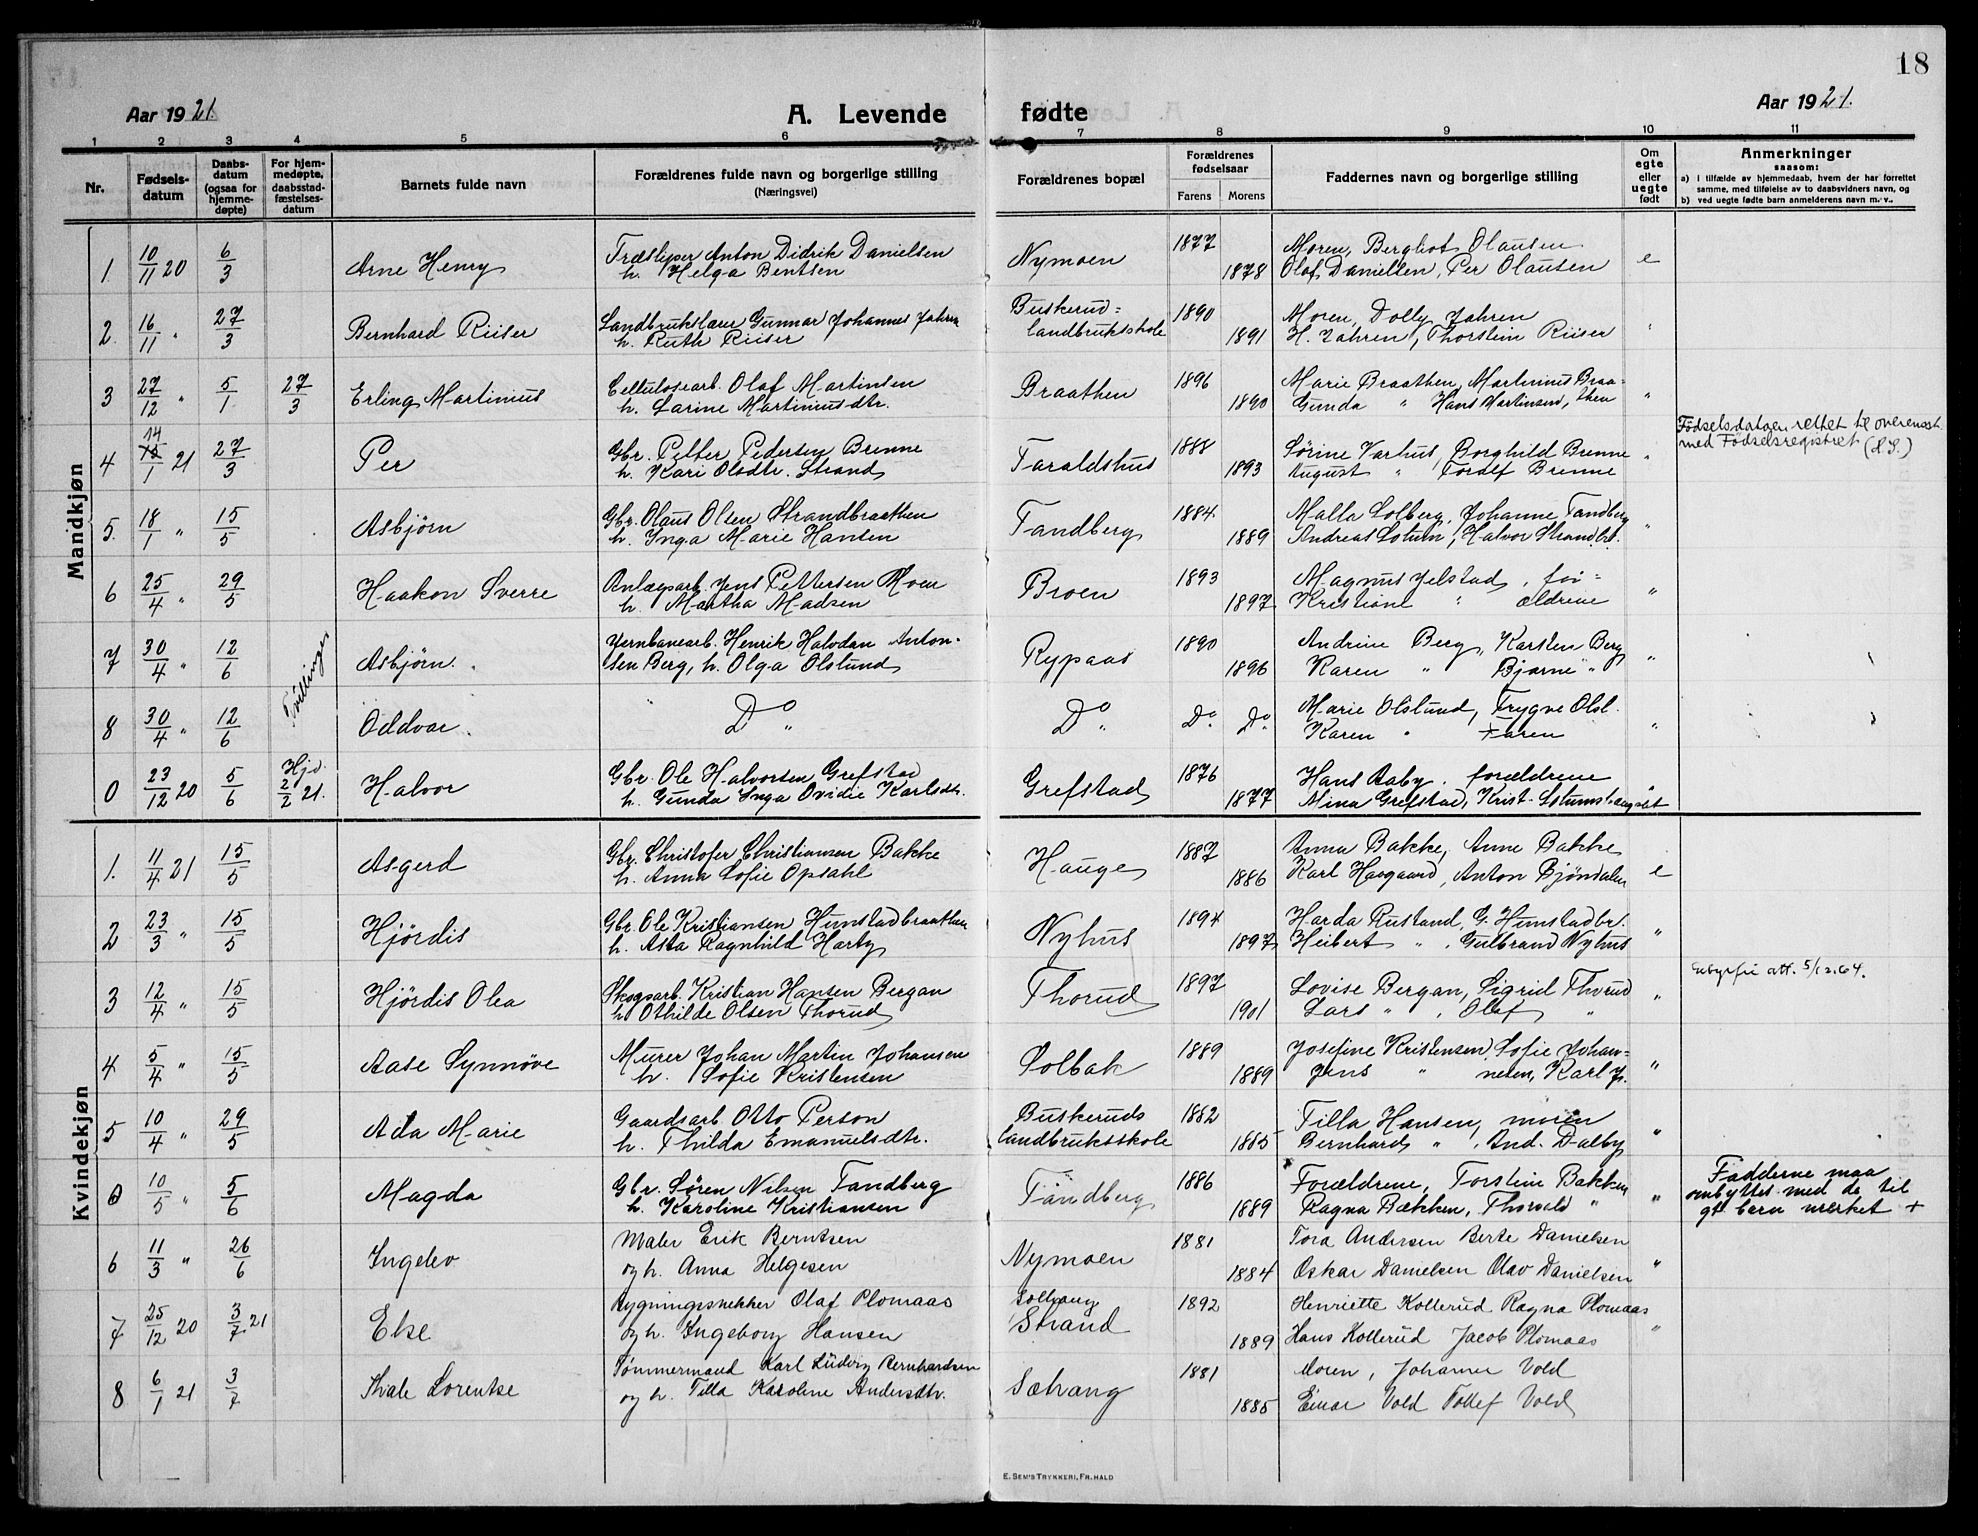 18
Aar 1921.
A. Levende fødte
Aar 1921.
1 2 3 4 5 6 7 8 9 10 11
Nr.
Fødsels-
datum
Daabs-
datum
(ogsaa for
hjemme-
døpte)
For hjem-
medøpte,
daabsstad-
fæstelses-
datum
Barnets fulde navn
Forældrenes fulde navn og borgerlige stilling
(Næringsvei)
Forældrenes bopæl
Forældrenes
fødselsaar
Farens Morens
Faddernes navn og borgerlige stilling
Om
egte
eller
uegte
født
Anmerkninger
saasom:
a) i tilfælde av hjemmedaab, hvem der har forrettet
samme, med tilføielse av to daabsvidners navn, og
b) ved uegte fødte barn anmelderens navn m. v..
Mandkjøn
1. 10/11 20 6/3 Arne Henry Træsliper Anton Didrik Danielsen Nymoen 1877 Moren, Bergljot Olausen
h. Helga Bentsen 1878 Olaf Danielsen, Per Olausen e
2. 16/11 " 27/3 Bernhard Riiser Landbrukslærer Gunnar Johannes Jahren Buskerud= 1890 Moren, Dolly Jahren
h. Ruth Riiser landbruksskole 1891 H. Jahren, Thorstein Riiser "
3 27/12 " 5/1 27/3 Erling Martinius Cellulosearb. Olaf Martinsen Braathen 1896 Marie Braathen, Martinius Braa=
h. Larine Martiniusdtr. 1890 Gunda " Hans Martinsen, then "
4 14/1 21 27/3 Per Gbr. Petter Pedersen Brenne Taraldshus 1888 Sørine Varhus, Borghild Brenne
h. Kari Olsdtr. Strand 1893 August " Tordlf Brenne "
Fødselsdatoen rettet til overensst.
med Fødselsregistret (L.S.)
5. 18/1 " 15/5 Asbjørn Gbr. Olaus Olsen Strandbraathen Tandberg 1884. Malla Solberg, Johanne Tandberg
h. Inga Marie Hansen 1889 Andreas Lotum, Halvor Strandbr. "
6 25/4 " 29/5 Haakon Sverre Anlægsarb. Jens Pettersen Moen Broen 1893 Magnus Jelstad, for=
h. Martha Madsen 1897 Kristiane " ældrene "
7 30/4 " 12/6 Tvillinger Asbjørn. Jernbanearb. Henrik Halvdan Anton- Rypaas 1890 Andrine Berg, Karsten Berg
sen Berg, h. Olga Olslund 1896 Karen " Bjarne " "
8 30/4 " 12/6 Oddvar. Do " Do " Do Do Marie Olslund, Trygve Olsl.
Karen " Faren "
0 23/12 20 5/6 Hjd. 2/2 21. Halvor Gbr. Ole Halvorsen Grefstad Grefstad 1876 Hans Aaby, forældrene
h. Gunda Inga Ovidie Karlsdtr. 1877 Mina Grefstad, Krist.
Kvindekjøn
1. 11/4 21 15/5 Asgerd Gbr. Christofer Christiansen Bakke Hauge 1887 Anna Bakke, Anne Bakke
h. Anna Sofie Opsahl 1886 Karl Haagaard, Anton Bjöndalen e
2 23/3 " 15/5 Hjørdis Gbr. Ole Kristiansen Hunstadbraathen Nyhus 1894 Harda Rustand, G. Hunstadbr.
h. Asta Ragnhild Harty 1897 Heibert " , Gulbrand Nyhus "
3 12/4 " 15/5 Hjørdis Olea Skogsarb. Kristian Hansen Bergan Thorud 1897 Lovise Bergan, Sigrid Thorud
h. Othilde Olsen Thorud 1901 Lars " , Olaf " "
att. 5/12.64.
4 5/4 " 15/5 Aase Synnøve Murer Johan Martin Johansen Solbak 1889 Josefine Kristensen, Sofie Johan=
h. Sofie Kristensen 1889 Jens " nesen, Karl J. "
5 10/4 " 29/5 Ada Marie Gaardsarb. Otto Person Buskeruds 1882 Tilla Hansen, moren
h. Thilda Emanuelsdtr. landbruksskole 1885 Bernhard " , And. Dalby "
0 10/5 " 5/6 Magda Gbr. Søren Nilsen Tandberg Tandberg 1886 Forældrene, Torstein Bakken
h. Karoline Kristiansen 1889 Ragna Bakken, Thorvald " "
Fadderne maa
ombyttes med de til
gt. barn merket +
6 11/3 " 26/6 Ingelev Maler Erik Berntsen Nymoen 1881 Tora Andersen Berte Danielsen
og h. Anna Helgesen 1884 Oskar Danielsen Olav Danielsen "
7 25/12 20 3/7 21 Else Bygningssnekker Olaf Plomaas Solhaug 1892 Henriette Kollerud Ragna Plomaas
og h. Ingeborg Hansen Strand 1889 Hans Kollerud Jacob Plomaas "
8 6/1 21 3/7 Svale Lorentse Tømmermand Karl Lüdvig Bernhardsen Solhaug 1881 Moren, Johanne Vold
og h. Tilla Karoline Andersdtr. 1885 Einar Vold Tollef Vold
E. SEM'S TRYKKERI, FR. HALD